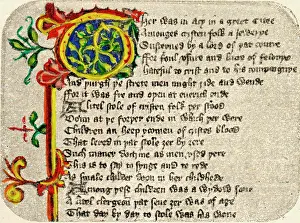 Ther was in asy in a greet cite
Amonges cristen folk a Jewerye
Susteyned by a lord of þat contre
For foul usure and lucre of felonye
Hateful to crist and to his compaignye
And þurgh þe strete men might ride and wende
For it was fre and open at everich ende
A litel scole of cristen folk þer stood
Doun at þe forþer ende in which þer were
Children an heep ycomen of cristes blood
That lered in þat scole yer by yere
Such maner doctrine as men used þere
This is to say to singe and to rede
As smale childer doon in her childhede
Among þese children was a wydows sone
A litel clergeoun þat seve yeer was of age
That day by day to scole was his wone